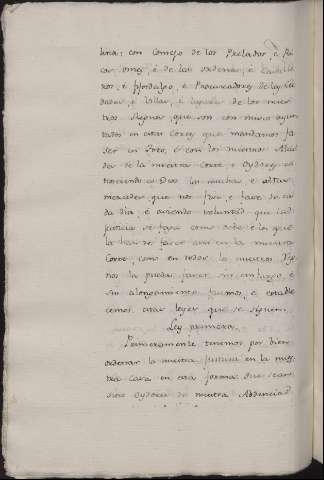 lina; con Consejo de los Perlados, è Ri
cos omes, è de las ordenes, è Caballe
ros, è fijosdalgo, è Procuradores de las Cib
dades, è Villas, è logares de los nues
tros Regnos, que son con nusco ayun
tados en estas Cortes que mandamos fa
cer en Toro, è con los nuestros Alcal
des de la nuestra Corte, è Oydores co
nosciendo a Dios las muchas, è altas
mercedes que nos fizo, è face de ca
da dia, è aviendo voluntad que la
justicia se faga como debe, è los que
la han de facer asi en la nuestra
Corte, como en todos los nuestros Reg
nos la puedan facer sin embargo, è
sin alongamiento facemos, è estable
cemos estas leyes que se siguen.
Ley primera.
Primeramente tenemos por bien
ordenar la nuestra justicia en la nues
tra Casa en esta forma: que sean
siete Oydores de nuestra Abdiencia